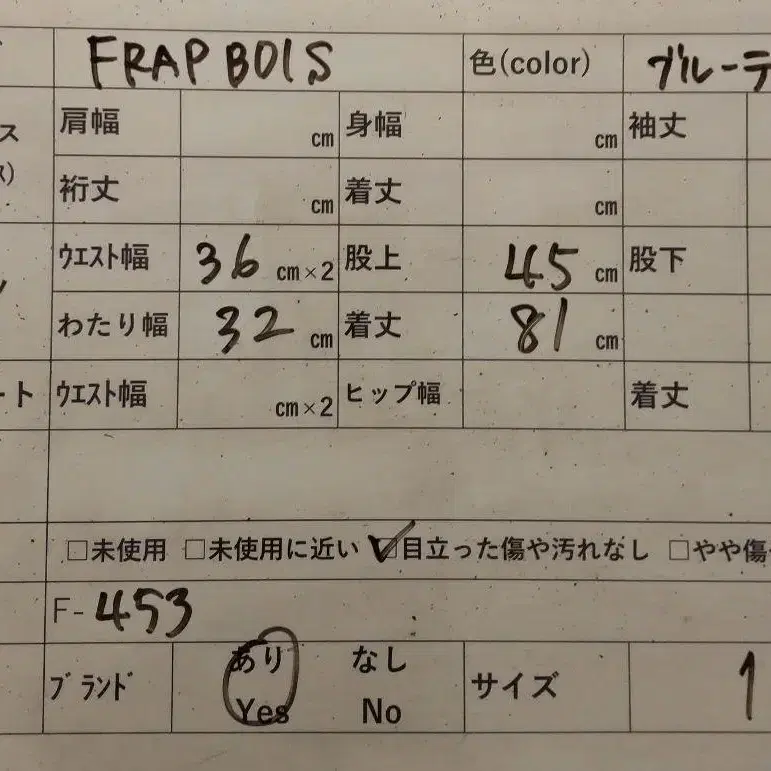 FRAP BOIS 色(color) ブルーデ
ス 肩幅 cm 身幅 cm 袖丈
ス) 裄丈 cm 着丈 cm
ウエスト幅 36 cm×2 股上 45 cm 股下
わたり幅 32 cm 着丈 81 cm
ート ウエスト幅 cm×2 ヒップ幅 着丈
□未使用 □未使用に近い ☑目立った傷や汚れなし □やや傷
F-453
ブランド あり なし サイズ 1
Yes No